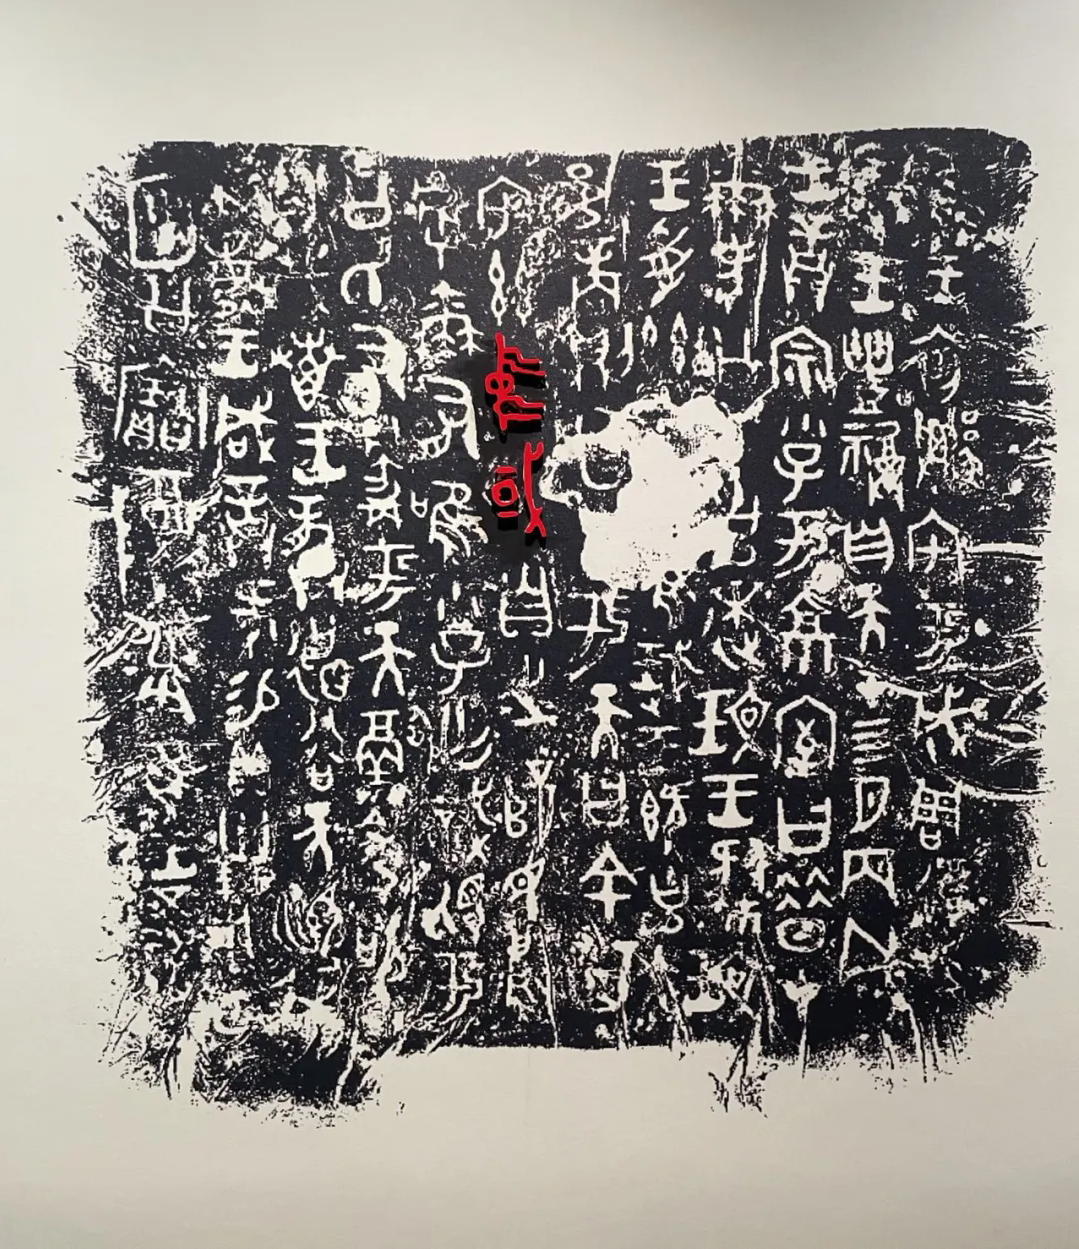 唯王初遷宅于成周復
爯珷王豐祼自天在四月丙戌
王誥宗小子于京室曰昔在
爾考公氏克逨玟王肆玟
王受茲
唯珷王既克大
邑商則廷告于天曰余其
宅茲中或自之乂民嗚
呼爾有唯小子亡識視于
公氏有爵于天徹令敬
享哉唯王恭德裕天訓我
不敏王咸誥何賜貝卅朋用作
庾公寶尊彝唯王五祀